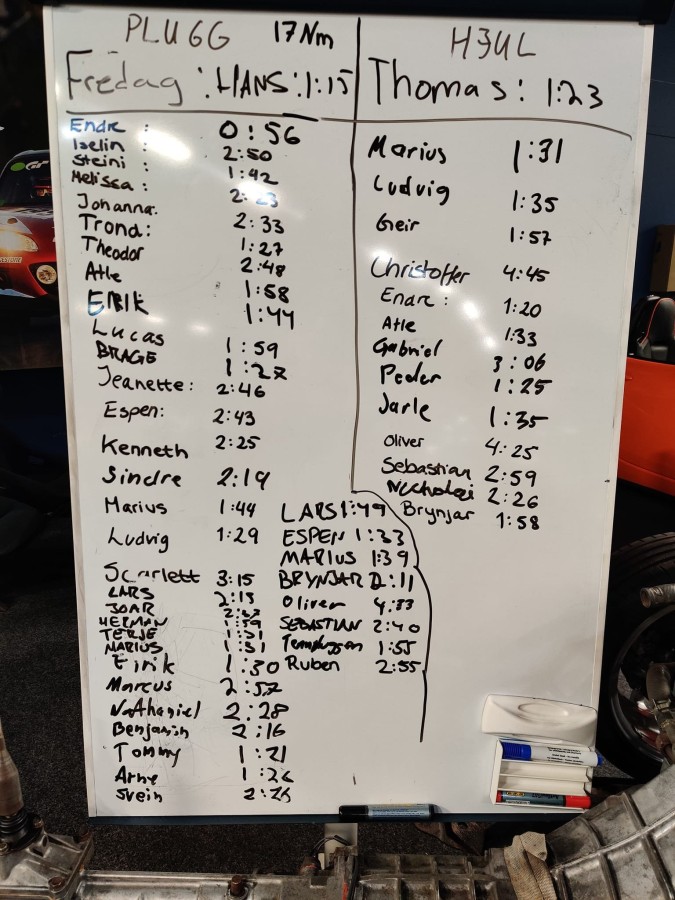 PLUGG 17Nm
Fredag : HANS: 1:15
Endre : 0:56
Iselin : 2:50
Steini : 1:42
Melissa : 2:23
Johanna: 2:33
Trond: 1:27
Theodor 2:48
Atle 1:58
ERIK 1:44
Lucas 1:59
BRAGE 1:27
Jeanette: 2:46
Espen: 2:43
Kenneth 2:25
Sindre 2:19
Marius 1:44
Ludvig 1:29
Scarlett 3:15
LARS 2:13
JOAR
HERMAN 1:59
TERJE 1:31
MARIUS 1:51
Eirik 1:30
Marcus 2:52
Nathaniel 2:28
Benjamin 2:16
Tommy 1:21
Arne 1:26
Svein 2:26
LARS 1:49
ESPEN 1:33
MARIUS 1:39
BRYNJAR 2:11
Oliver 4:33
SEBASTIAN 2:40
1:55
Ruben 2:55
HJUL
Thomas: 1:23
Marius 1:31
Ludvig 1:35
Geir 1:57
Christoffer 4:45
Endre : 1:20
Atle 1:33
Gabriel 3:06
Peder 1:25
Jarle 1:35
Oliver 4:25
Sebastian 2:59
2:26
Brynjar 1:58